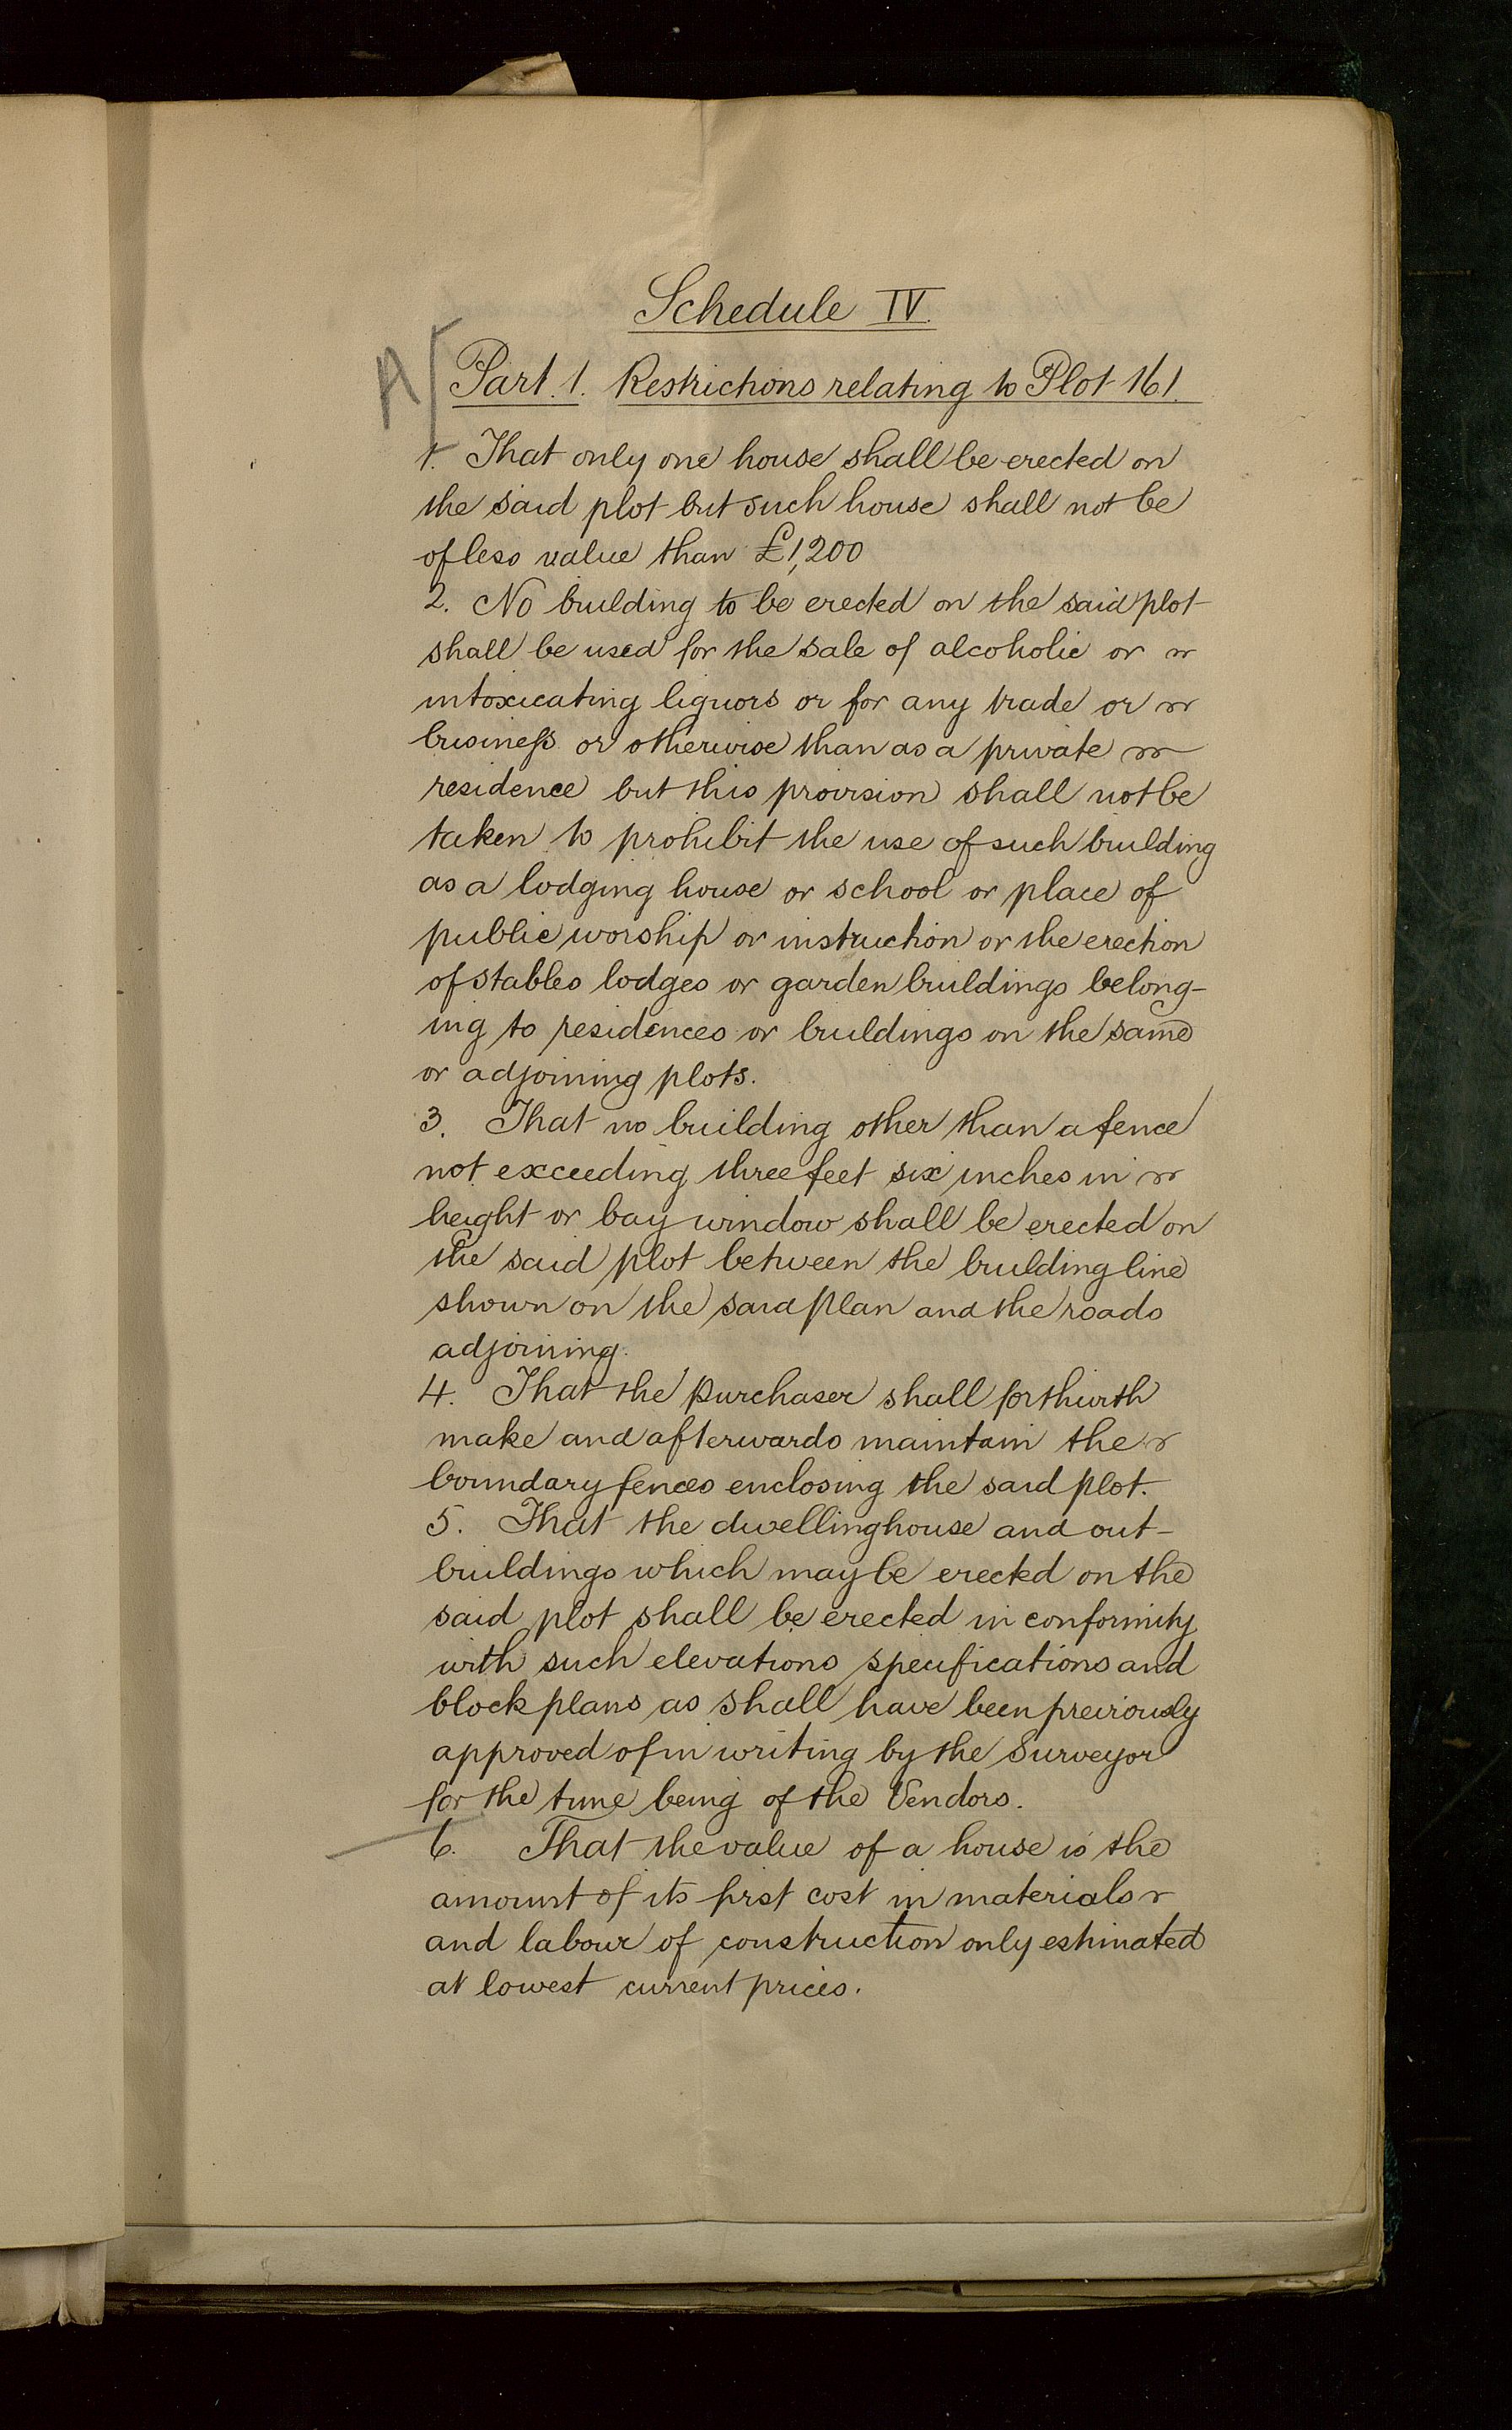 Schedule IV.
A
Part. 1. Restrictions relating to Plot 161.
1. That only one house shall be erected on
the said plot but such house shall not be
of less value than £1,200
2. No building to be erected on the said plot
shall be used for the sale of alcoholic or
intoxicating liquors or for any trade or
business or otherwise than as a private
residence but this provision shall not be
taken to prohibit the use of such building
as a lodging house or school or place of
public worship or instruction or the erection
of stables lodges or garden buildings belong-
ing to residences or buildings on the same
or adjoining plots.
3. That no building other than a fence
not exceeding three feet six inches in
height or bay window shall be erected on
the said plot between the building line
shown on the said plan and the roads
adjoining.
4. That the purchaser shall forthwith
make and afterwards maintain the
boundary fences enclosing the said plot.
5. That the dwellinghouse and out-
buildings which may be erected on the
said plot shall be erected in conformity
with such elevations specifications and
block plans as shall have been previously
approved of in writing by the Surveyor
for the time being of the Vendors.
6. That the value of a house is the
amount of its first cost in materials
and labour of construction only estimated
at lowest current prices.